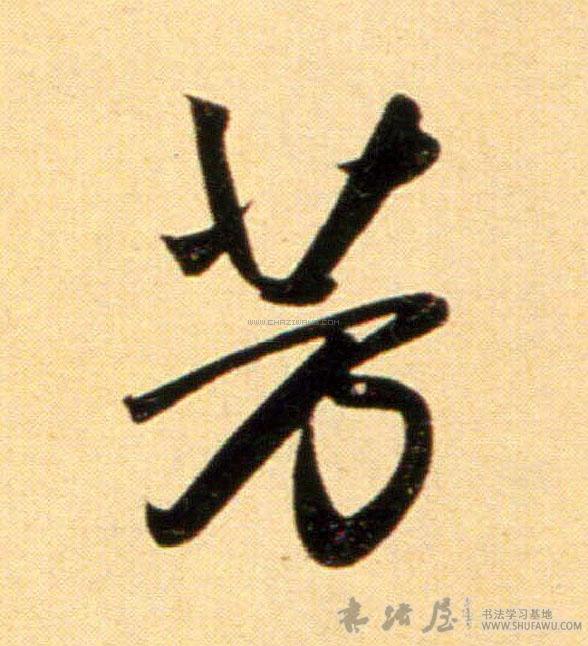 芳
WWW.CHAZIWANG.COM
书法屋 书法学习基地
WWW.SHUFAWU.COM